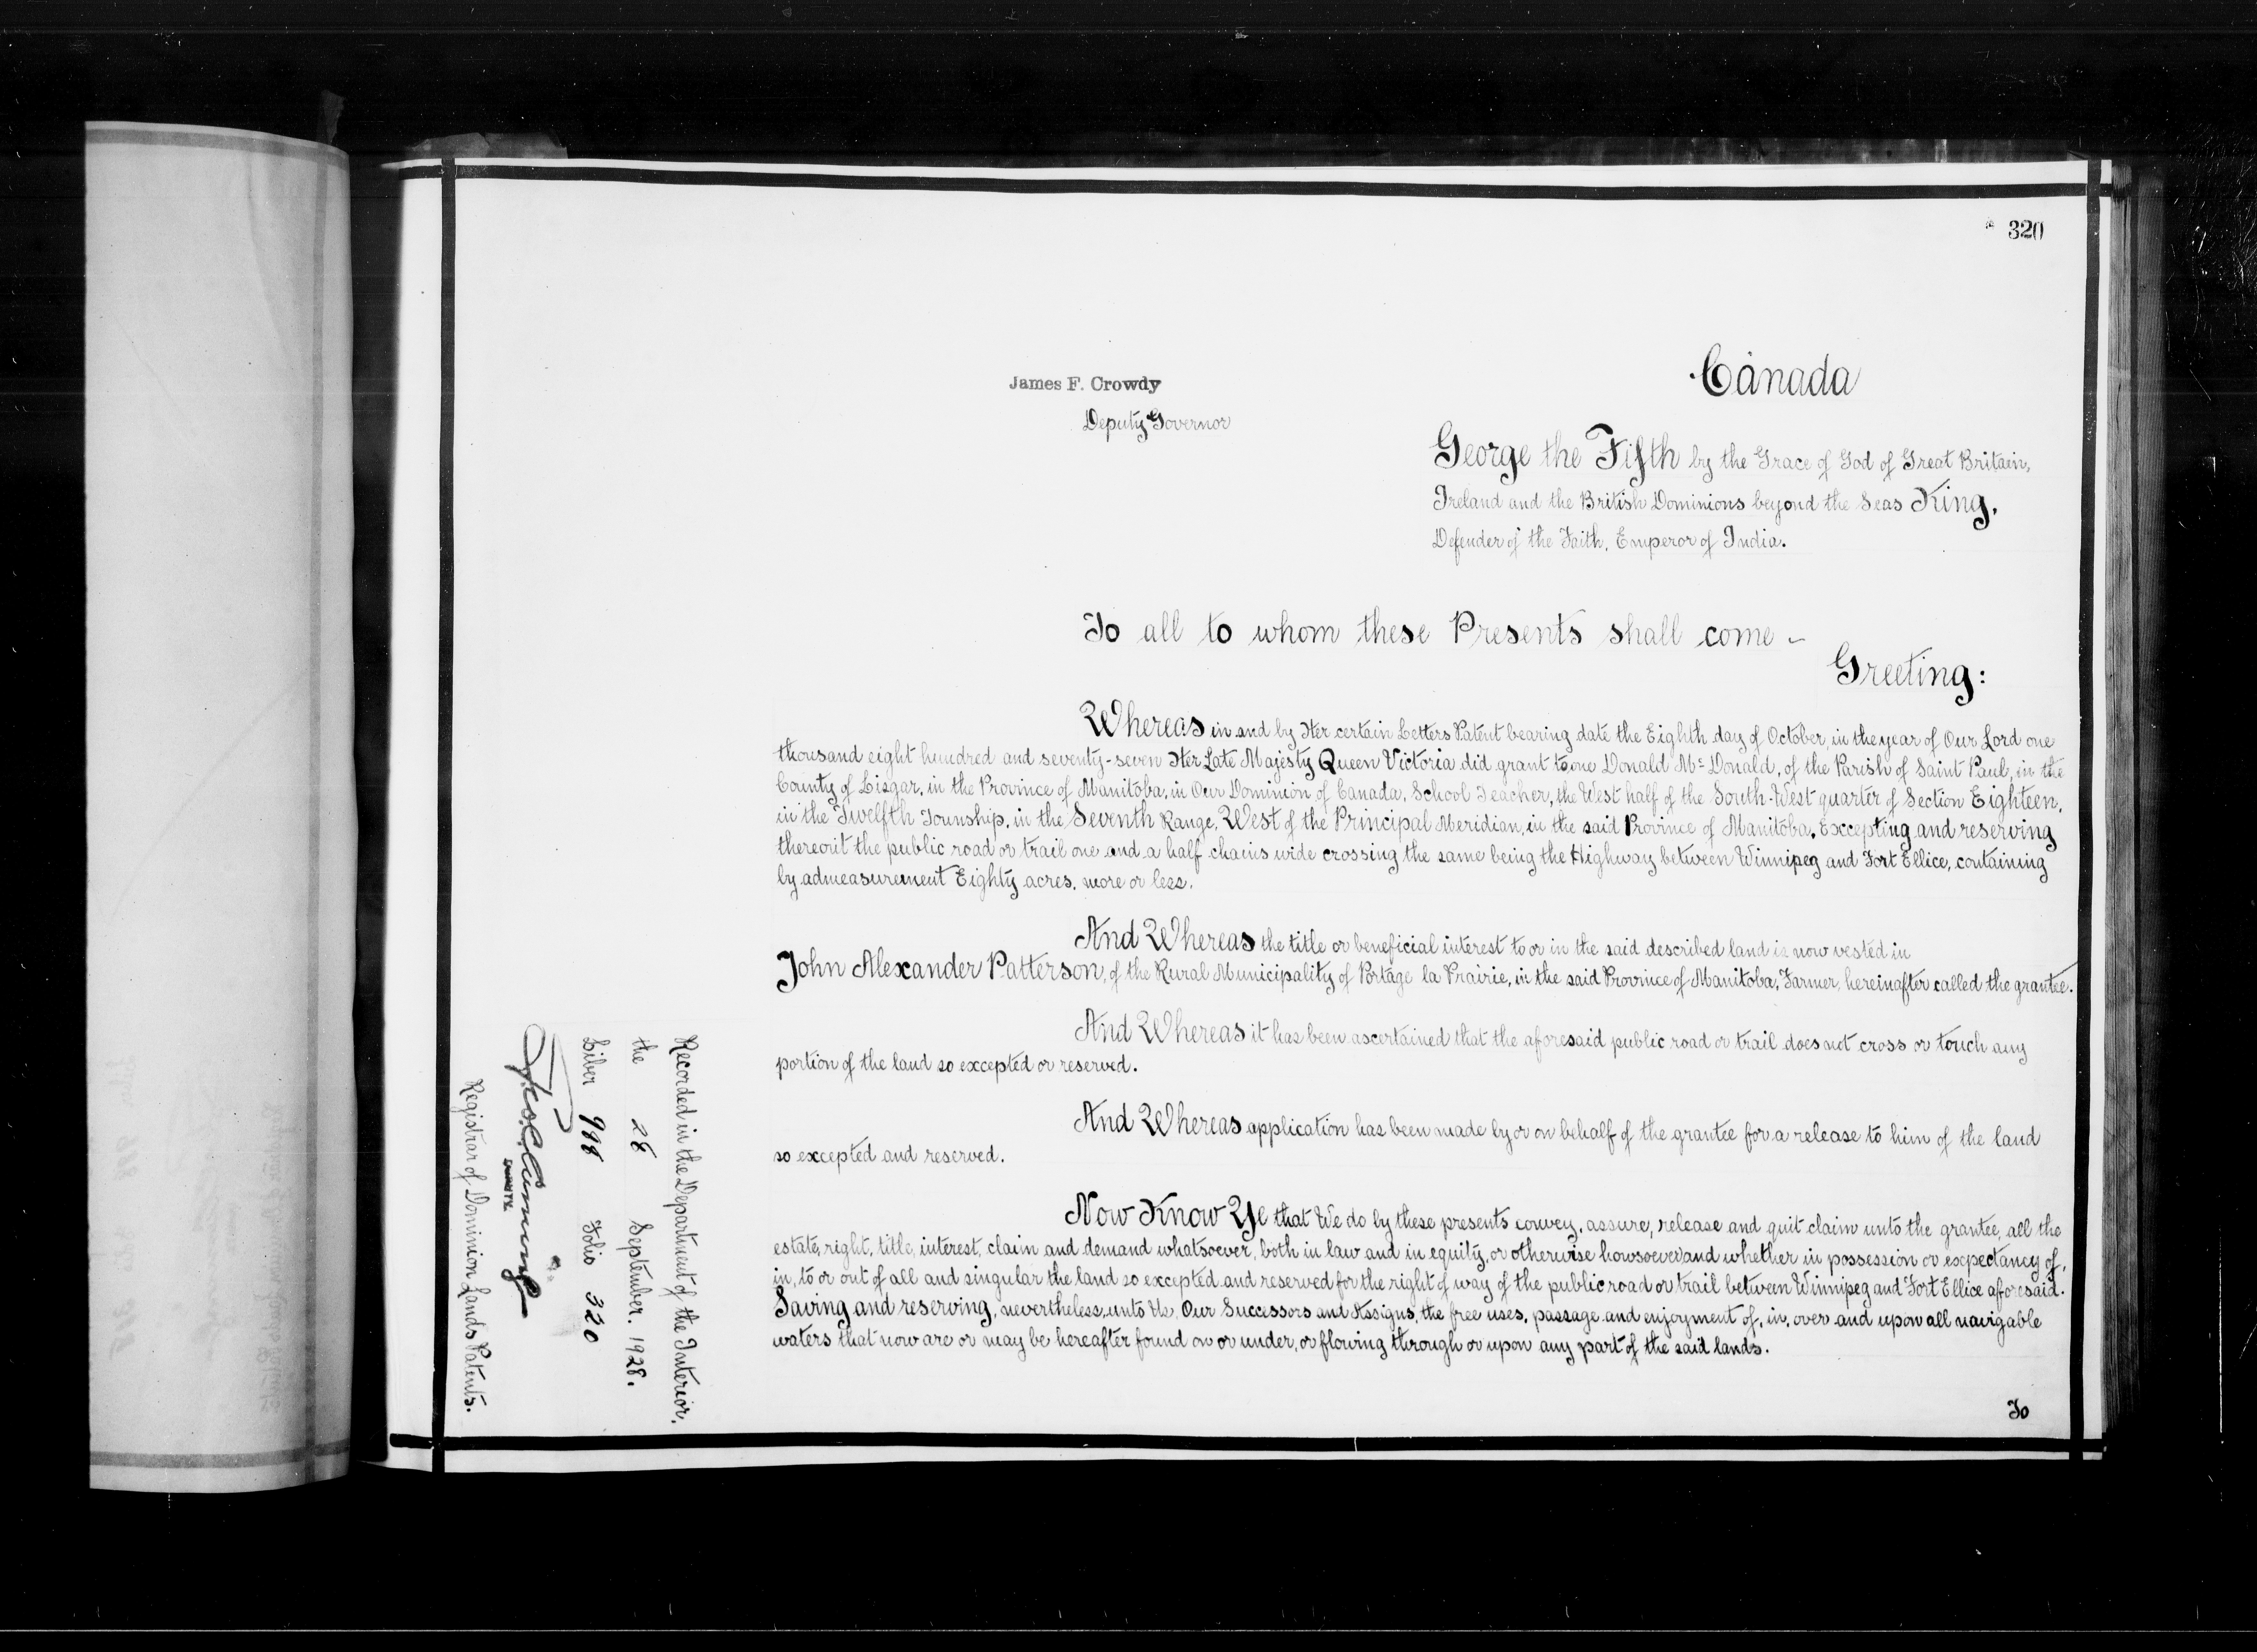 320
James F. Crowdy
Deputy Governor
Canada
George the Fifth by the Grace of God of Great Britain,
Ireland and the British Dominions beyond the Seas King,
Defender of the Faith, Emperor of India.
To all to whom these Presents shall come ~
Greeting:
Whereas in and by Her certain Letters Patent bearing date the Eighth day of October, in the year of Our Lord one
thousand eight hundred and seventy-seven Her Late Majesty Queen Victoria did grant to one Donald Mc Donald, of the Parish of Saint Paul, in the
County of Lisgar, in the Province of Manitoba, in Our Dominion of Canada, School Teacher, the West half of the South-West quarter of Section Eighteen,
in the Twelfth Township, in the Seventh Range, West of the Principal Meridian, in the said Province of Manitoba, Excepting and reserving
thereout the public road or trail one and a half chains wide crossing the same being the Highway between Winnipeg and Fort Ellice, containing
by admeasurement Eighty acres, more or less.
And Whereas the title or beneficial interest to or in the said described land is now vested in
John Alexander Patterson, of the Rural Municipality of Portage la Prairie, in the said Province of Manitoba, Farmer, hereinafter called the grantee.
And Whereas it has been ascertained that the aforesaid public road or trail does not cross or touch any
portion of the land so excepted or reserved.
And Whereas application has been made by or on behalf of the grantee for a release to him of the land
so excepted and reserved.
Now Know Ye that We do by these presents convey, assure, release and quit claim unto the grantee, all the
estate, right, title, interest, claim and demand whatsoever, both in law and in equity, or otherwise howsoever and whether in possession or expectancy of,
in, to or out of all and singular the land so excepted and reserved for the right of way of the public road or trail between Winnipeg and Fort Ellice aforesaid.
Saving and reserving, nevertheless, unto Us, Our Successors and Assigns, the free uses, passage and enjoyment of, in, over and upon all navigable
waters that now are or may be hereafter found on or under, or flowing through or upon any part of the said lands.
To
Recorded in the Department of the Interior,
the 28 September. 1928.
Liber 998 Folio 320
DEPUTY
Registrar of Dominion Lands Patents.